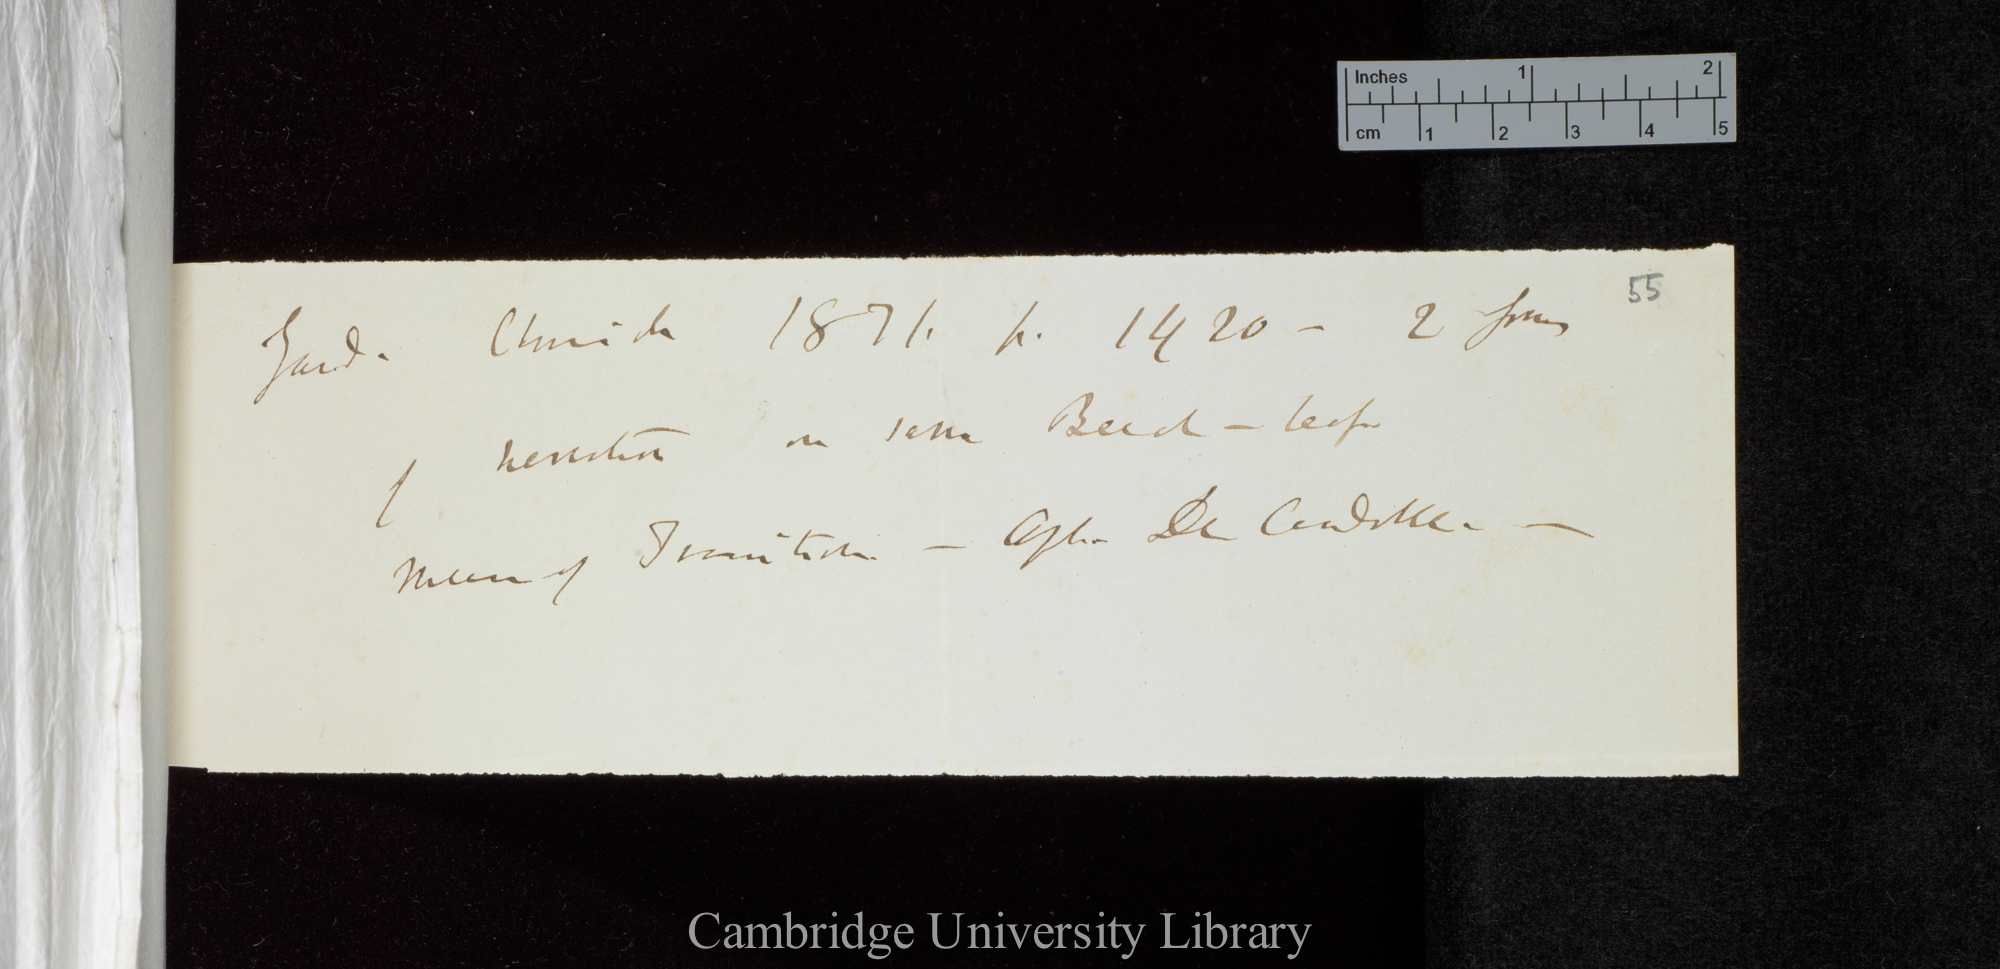 Inches 1 2
cm 1 2 3 4 5
55
Gard. Chronicle 1871. p. 1420 – 2 forms
of venation on same Beech – leaf
Means of Transition – Alph. De Candolle. —
Cambridge University Library